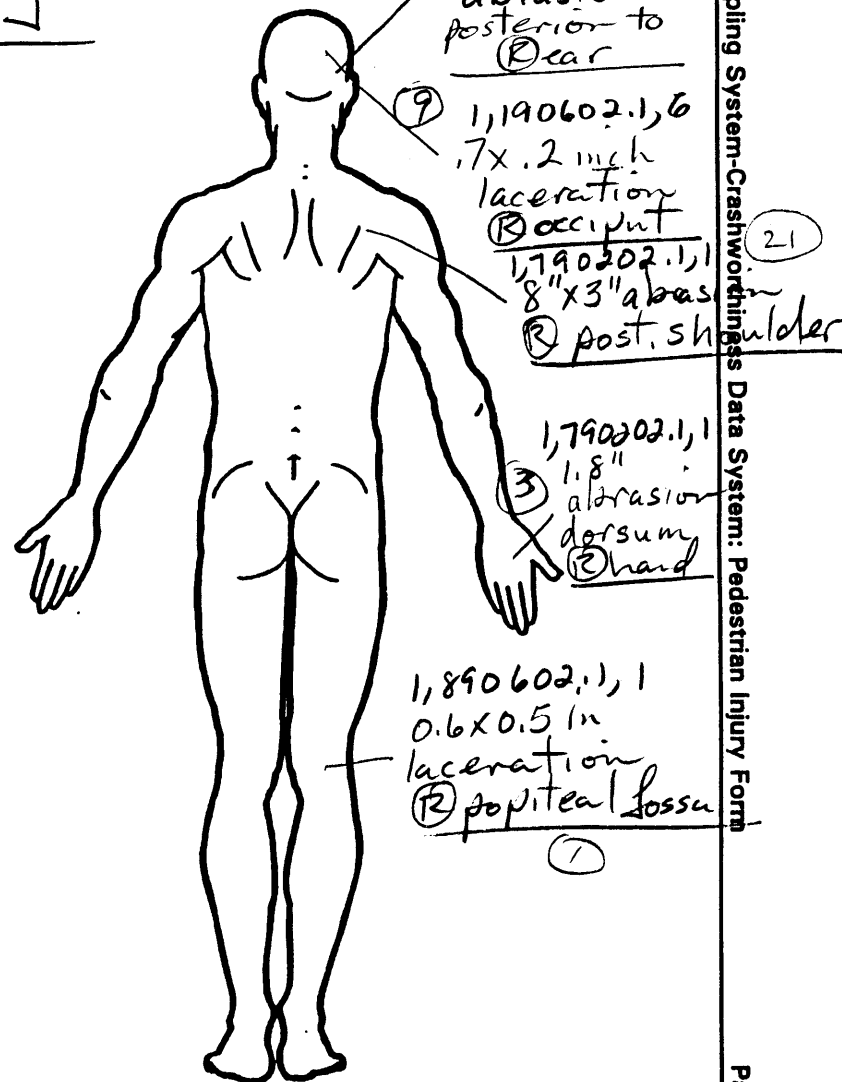 posterior to
Ⓡ ear
⑨ 1,190602.1,6
.7 x .2 inch
laceration
Ⓡ occiput
㉑
1,790202.1,1
8"x3" abrasion
Ⓡ post. shoulder
1,790202.1,1
③ 1.8"
abrasion
dorsum
Ⓡ hand
1,890602.1,1
0.6 x 0.5 in
laceration
Ⓡ popiteal fossa
pling System-Crashworthiness Data System: Pedestrian Injury Form